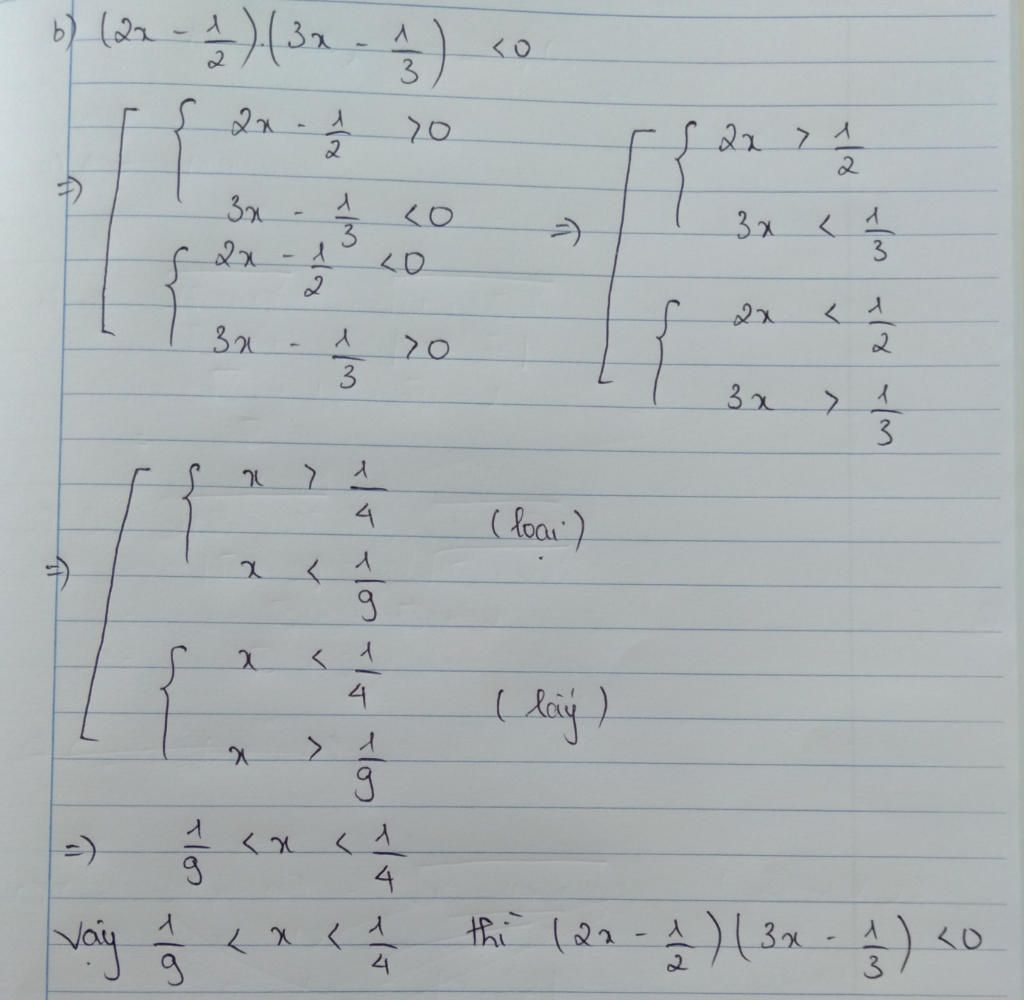 b) (2x - 1/2).(3x - 1/3) <0
=> [ { 2x - 1/2 >0
3x - 1/3 <0
{ 2x - 1/2 <0
3x - 1/3 >0
=> [ { 2x > 1/2
3x < 1/3
{ 2x < 1/2
3x > 1/3
=> [ { x > 1/4
x < 1/9 (loại)
{ x < 1/4
x > 1/9 (lấy)
=> 1/9 < x < 1/4
Vậy 1/9 < x < 1/4 thì (2x - 1/2)(3x - 1/3) <0